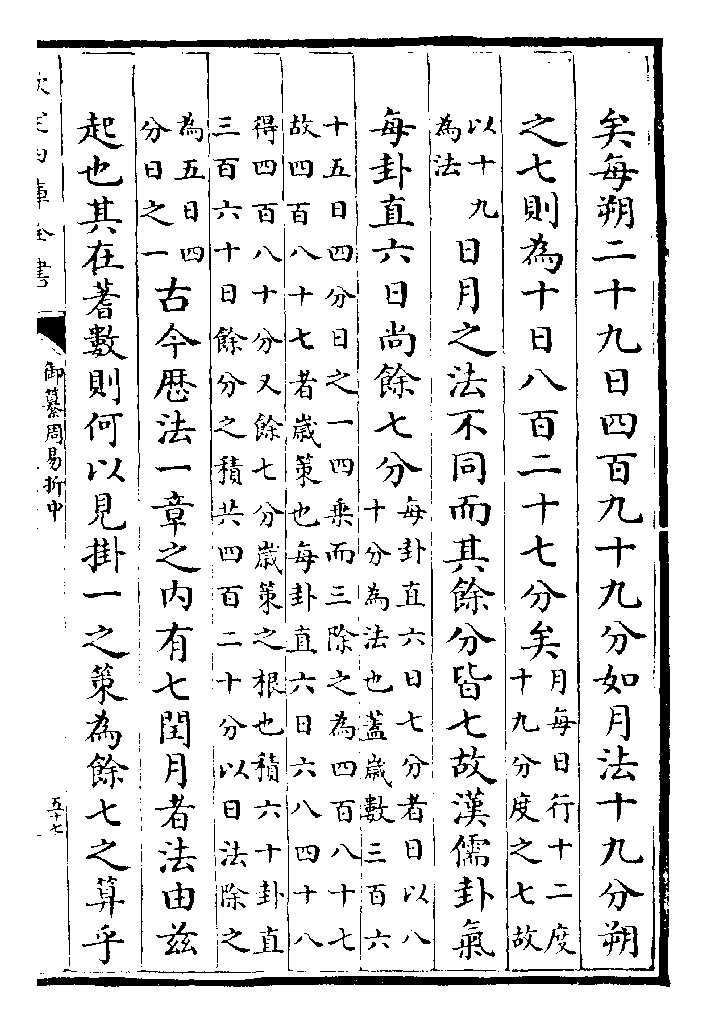 矣每朔二十九日四百九十九分如月法十九分朔
之七則為十日八百二十七分矣
月每日行十二度
十九分度之七故
以十九
為法
日月之法不同而其餘分皆七故漢儒卦氣
每卦直六日尚餘七分
每卦直六日七分者日以八
十分為法也蓋歲數三百六
十五日四分日之一四乗而三除之為四百八十七
故四百八十七者歲策也每卦直六日六八四十八
得四百八十分又餘七分歲策之根也積六十卦直
三百六十日餘分之積共四百二十分以日法除之
為五日四
分日之一
古今厯法一章之内有七閏月者法由兹
起也其在蓍數則何以見掛一之策為餘七之算乎
欽定四庫全書
御纂周易折中
五十七